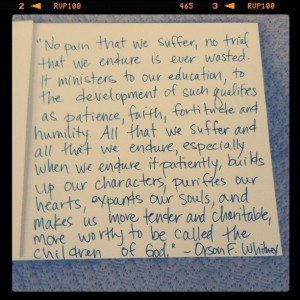 2 RVP100 465 3 RVP100
"No pain that we suffer, no trial
that we endure is ever wasted.
It ministers to our education, to
the development of such qualities
as patience, faith, fortitude and
humility. All that we suffer and
all that we endure, especially
when we endure it patiently, builds
up our characters, purifies our
hearts, expands our souls, and
makes us more tender and charitable,
more worthy to be called the
children of God." - Orson F. Whitney